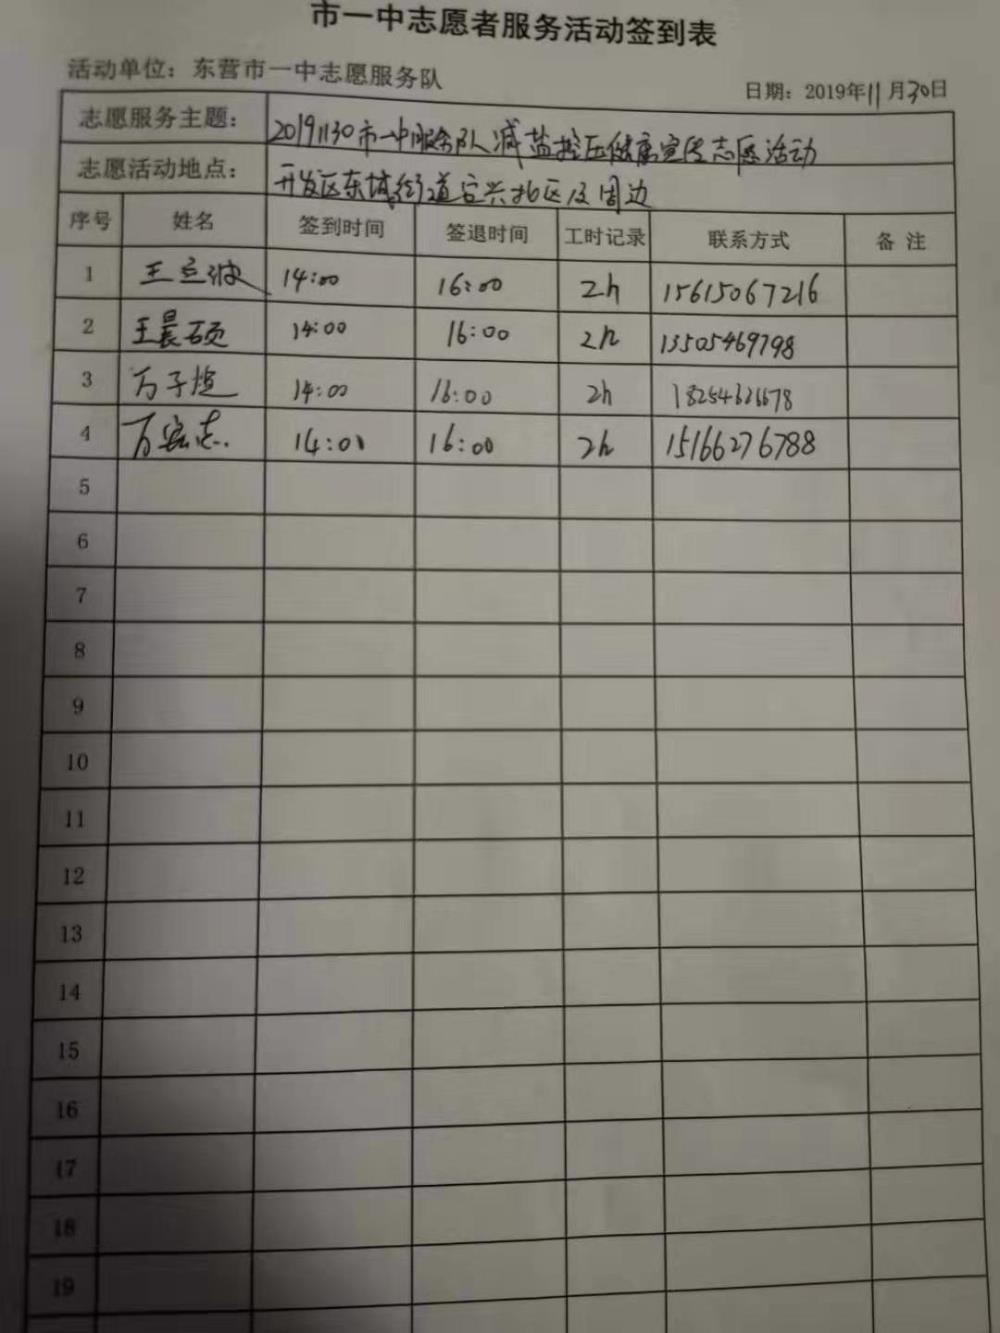 市一中志愿者服务活动签到表
活动单位：东营市一中志愿服务队 日期：2019年11月30日
志愿服务主题： 20191130市一中服务队减盐控压健康宣传志愿活动
志愿活动地点： 开发区东城街道安兴北区及周边
序号 姓名 签到时间 签退时间 工时记录 联系方式 备注
1 王立波 14:00 16:00 2h 15615067216
2 王晨硕 14:00 16:00 2h 13505469798
3 万子恒 14:00 16:00 2h 18254626678
4 万宏志 14:00 16:00 2h 15166276788
5
6
7
8
9
10
11
12
13
14
15
16
17
18
19